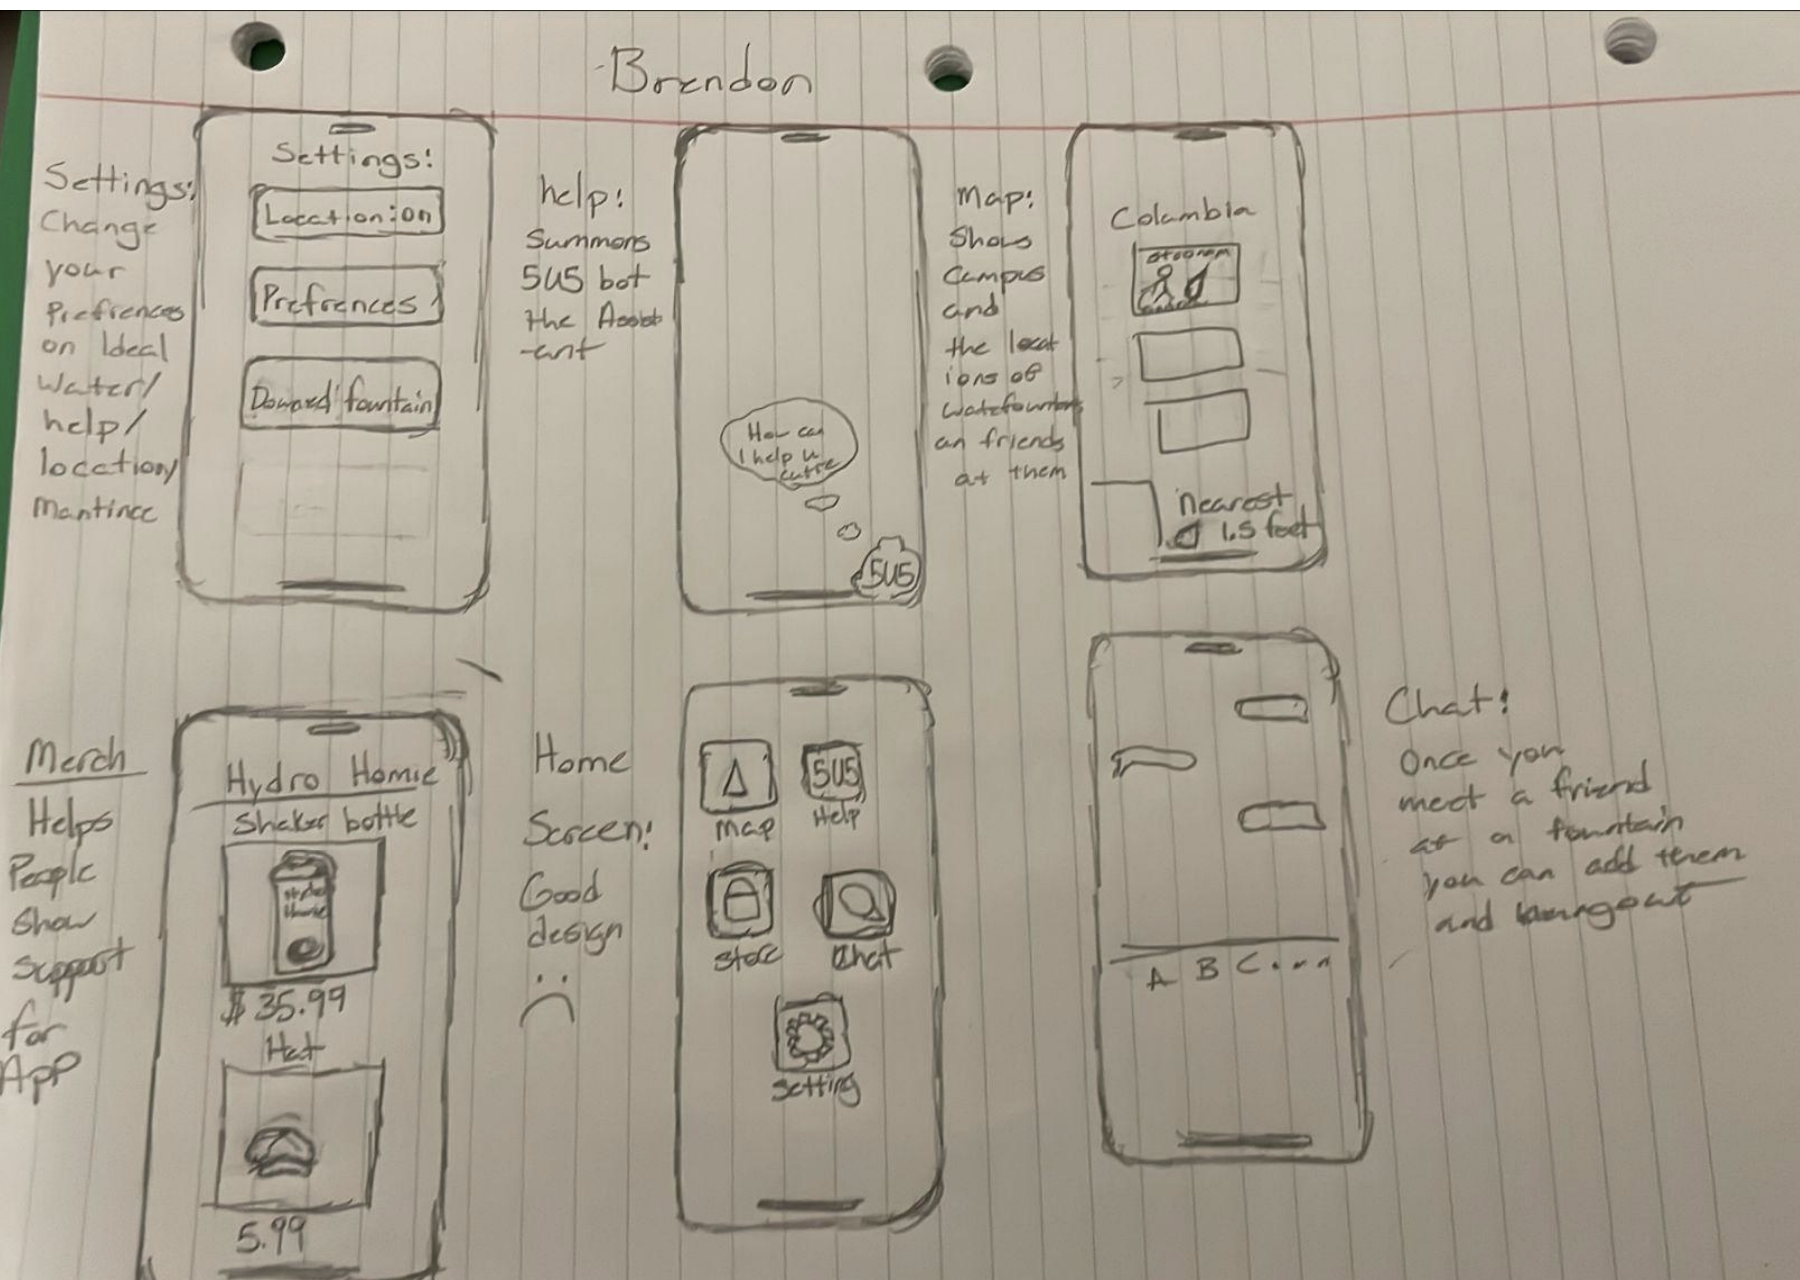 Brendon
Settings:
Change
your
Prefrences
on Ideal
Water/
help/
location/
Mantince
Settings:
Location:on
Prefrences
fountain
help:
Summons
SUS bot
the Assist
-ant
How can
I help u
cutie
SUS
Map:
Shows
Campus
and
the locat
ions of
an friends
at them
Columbia
nearest
1.5 feet
Merch
Helps
People
Show
Support
for
App
Hydro Homie
Shaker bottle
Hydro
Homie
$35.99
Hat
5.99
Home
Screen:
Good
design
:(
SUS
Map
Help
Store
Chat
Setting
A B C...
Chat:
Once you
meet a friend
at a fountain
you can add them
and hangout